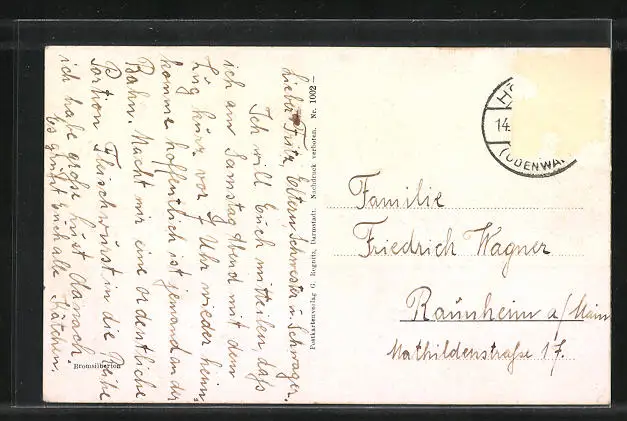 Lieber Fritz, Eltern Schwester u. Schwager.
Ich will Euch mitteilen daß
ich am Samstag Abend mit dem
Zug kurz vor 9 Uhr wieder heim
komme hoffentlich ist jemand an der
Bahn. Macht mir eine ordentliche
Portion Fleischwurst in die Reihe
ich habe große Lust danach.
Es grüßt Euch alle Kätchen.
Bromsilberton
Postkartenverlag G. Rognitz, Darmstadt. Nachdruck verboten. Nr. 1002 –
14.
(ODENWA
Familie
Friedrich Wagner
Raunheim a/Main
Mathildenstraße 17.